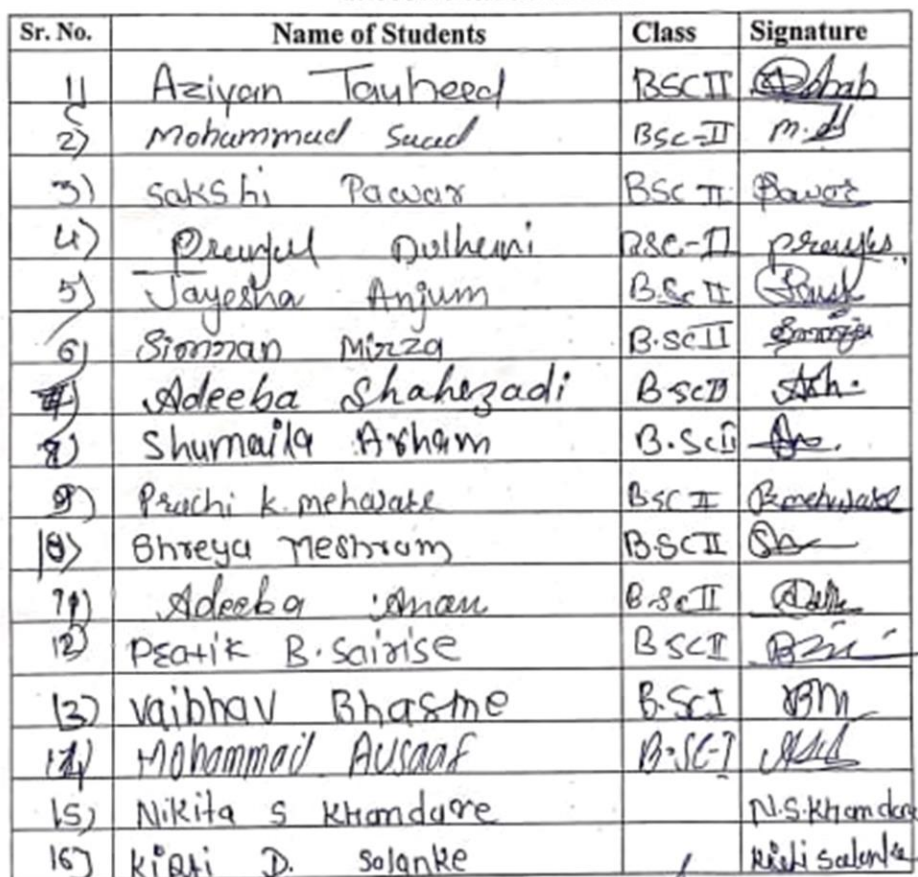 Sr. No. Name of Students Class Signature
1) Aziyan Tauheed BSC II
2) Mohammad Saad BSC-II M.
3) Sakshi Pawar BSC II Pawar
4) Dulhemi BSC-II
5) Jayesha Anjum B.Sc II
6) Simran Mirza B.SC II
7) Adeeba Shahezadi B.SC II Ash.
8) Shumaila Arham B.Sc II
9) Prachi k. mehasare BSC II
10) Shreya Meshram B.SC II Sh
11) Adeeba Anan B.Sc II
12) Pratik B. Sairise B SC II
13) Vaibhav Bhasme B.Sc I BM
14) Mohammad Ausaaf B.SC-I
15) Nikita S Khandare N.S.Khandare
16) Kirti D. Solanke Kirti Solanke